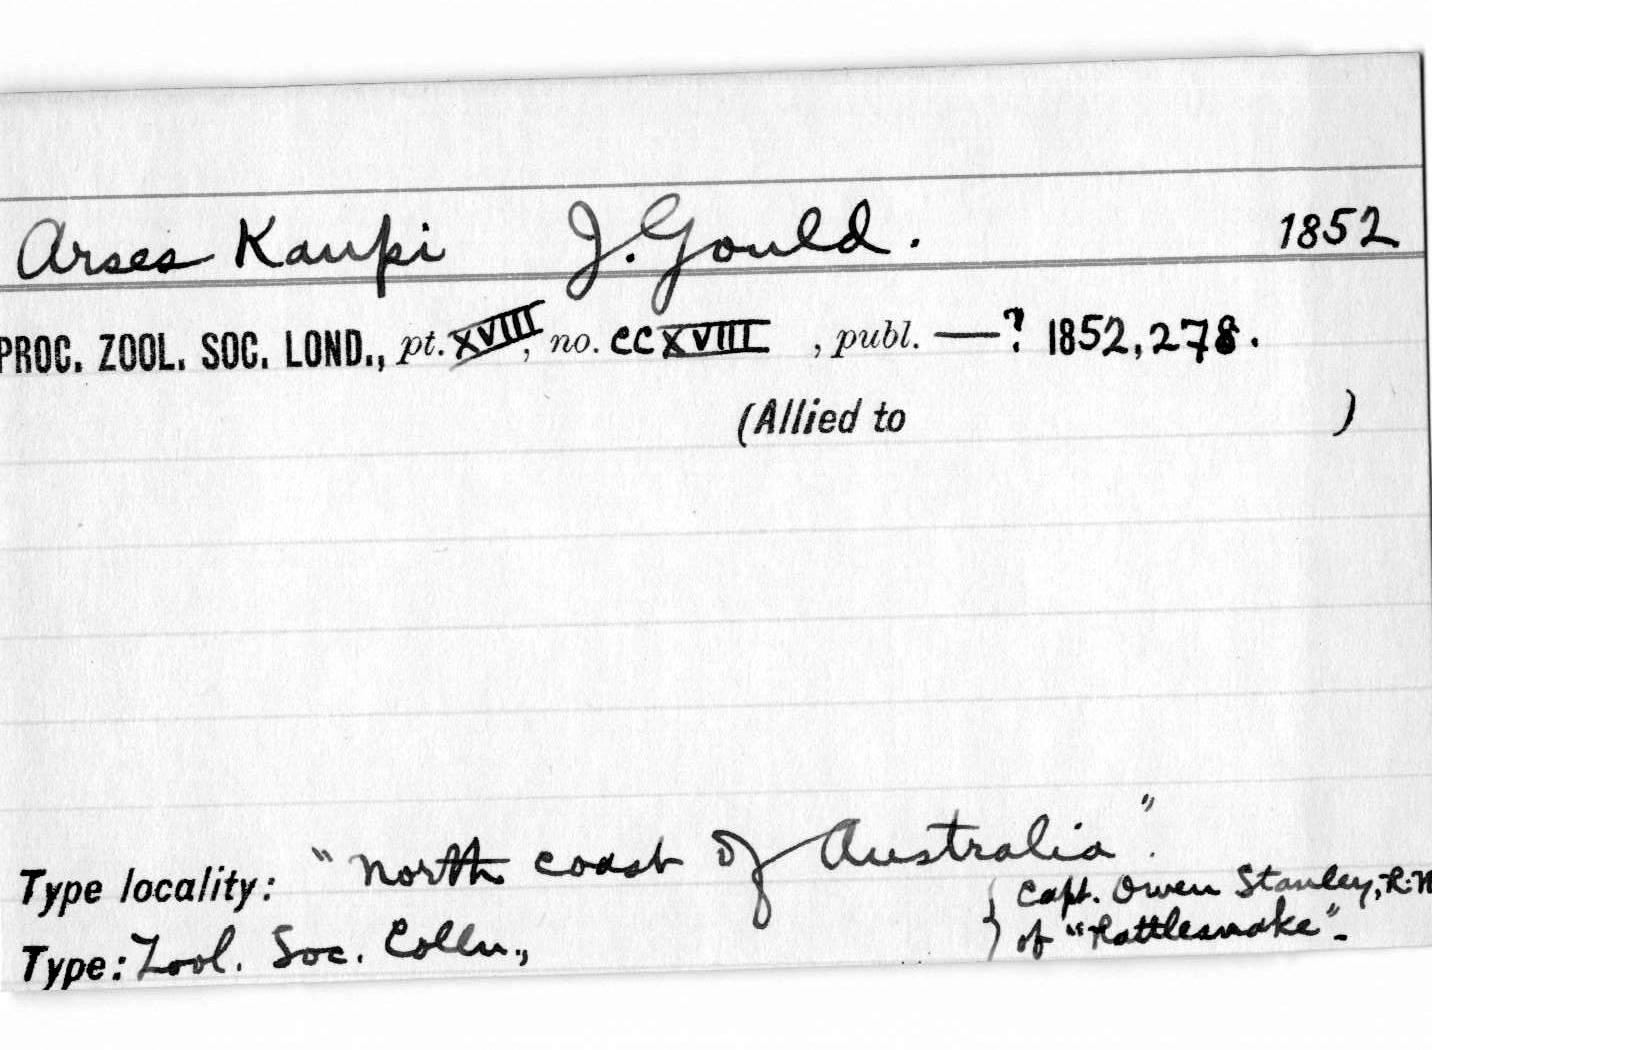 Arses Kaupi J. Gould. 1852
PROC. ZOOL. SOC. LOND., pt. XVIII, no. CCXVIII , publ. —? 1852, 278.
(Allied to )
Type locality: "North coast of Australia".
Capt. Owen Stanley, R.N
Type: Zool. Soc. Colln.,
of "Rattlesnake".